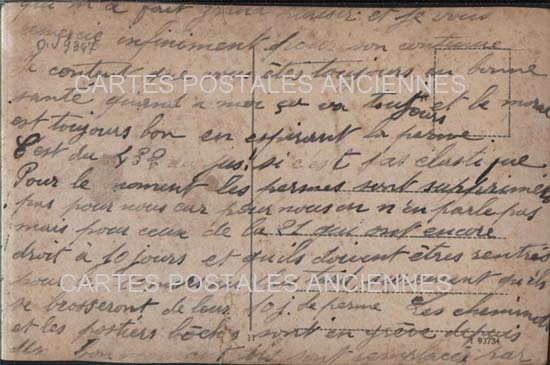 qui m'a fait grand plaisir et je vous
remercie infiniment pour son contenue
D.J 9347
content que vous êtes toujours en bonne
santé quand a moi ça va toujours et le moral
est toujours bon en espérant la perme
C'est du jusi si c'est pas élastique
Pour le moment les permes sont supprimées
pas pour nous car pour nous on n'en parle pas
mais pour ceux de la 21 qui ont encore
droit à 10 jours et qu'ils doivent êtres rentrés
pour le qu'ils
se brosseront de leur 10 j. de perme Les cheminots
et les postiers bôches sont en grève depuis
sont remplacés par
11
A 93734
CARTES POSTALES ANCIENNES
CARTES POSTALES ANCIENNES
CARTES POSTALES ANCIENNES